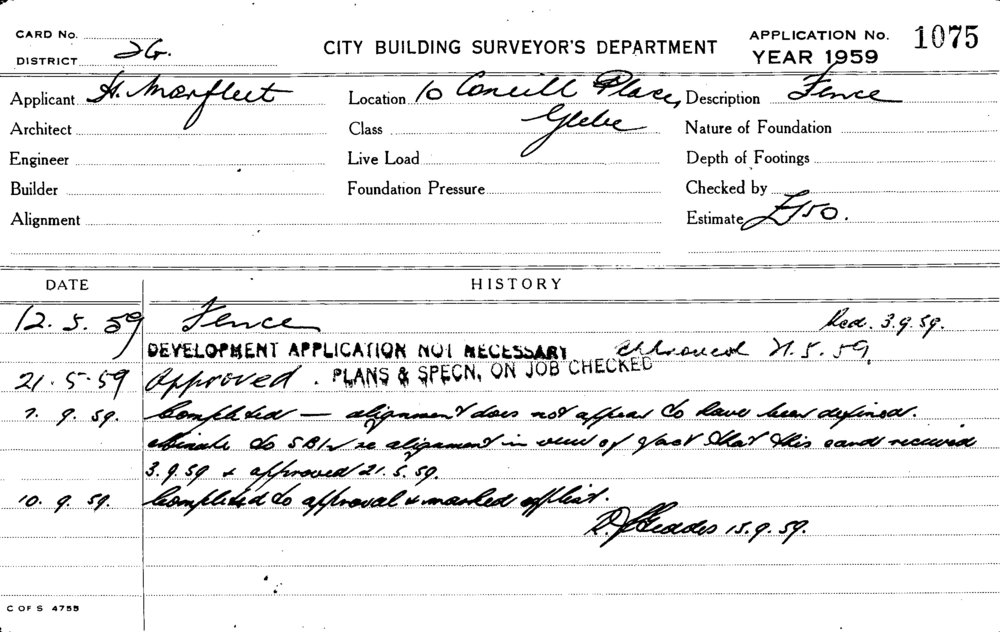 CARD No.
DISTRICT 2G.
CITY BUILDING SURVEYOR'S DEPARTMENT
APPLICATION No. 1075
YEAR 1959
Applicant H. Marfleet Location 10 Concill Place, Glebe Description Fence
Architect Class Nature of Foundation
Engineer Live Load Depth of Footings
Builder Foundation Pressure Checked by
Alignment Estimate £150.
DATE HISTORY
12.5.59 Fence Red. 3.9.59.
DEVELOPMENT APPLICATION NOT NECESSARY Approved 21.5.59.
21.5.59 Approved. PLANS & SPECN. ON JOB CHECKED
7.9.59. Completed — alignment does not appear to have been defined.
Minute to SBI re alignment in view of fact that this card received
3.9.59 & approved 21.5.59.
10.9.59. Completed to approval & marked off list.
Geddes 15.9.59.
C OF S 4755